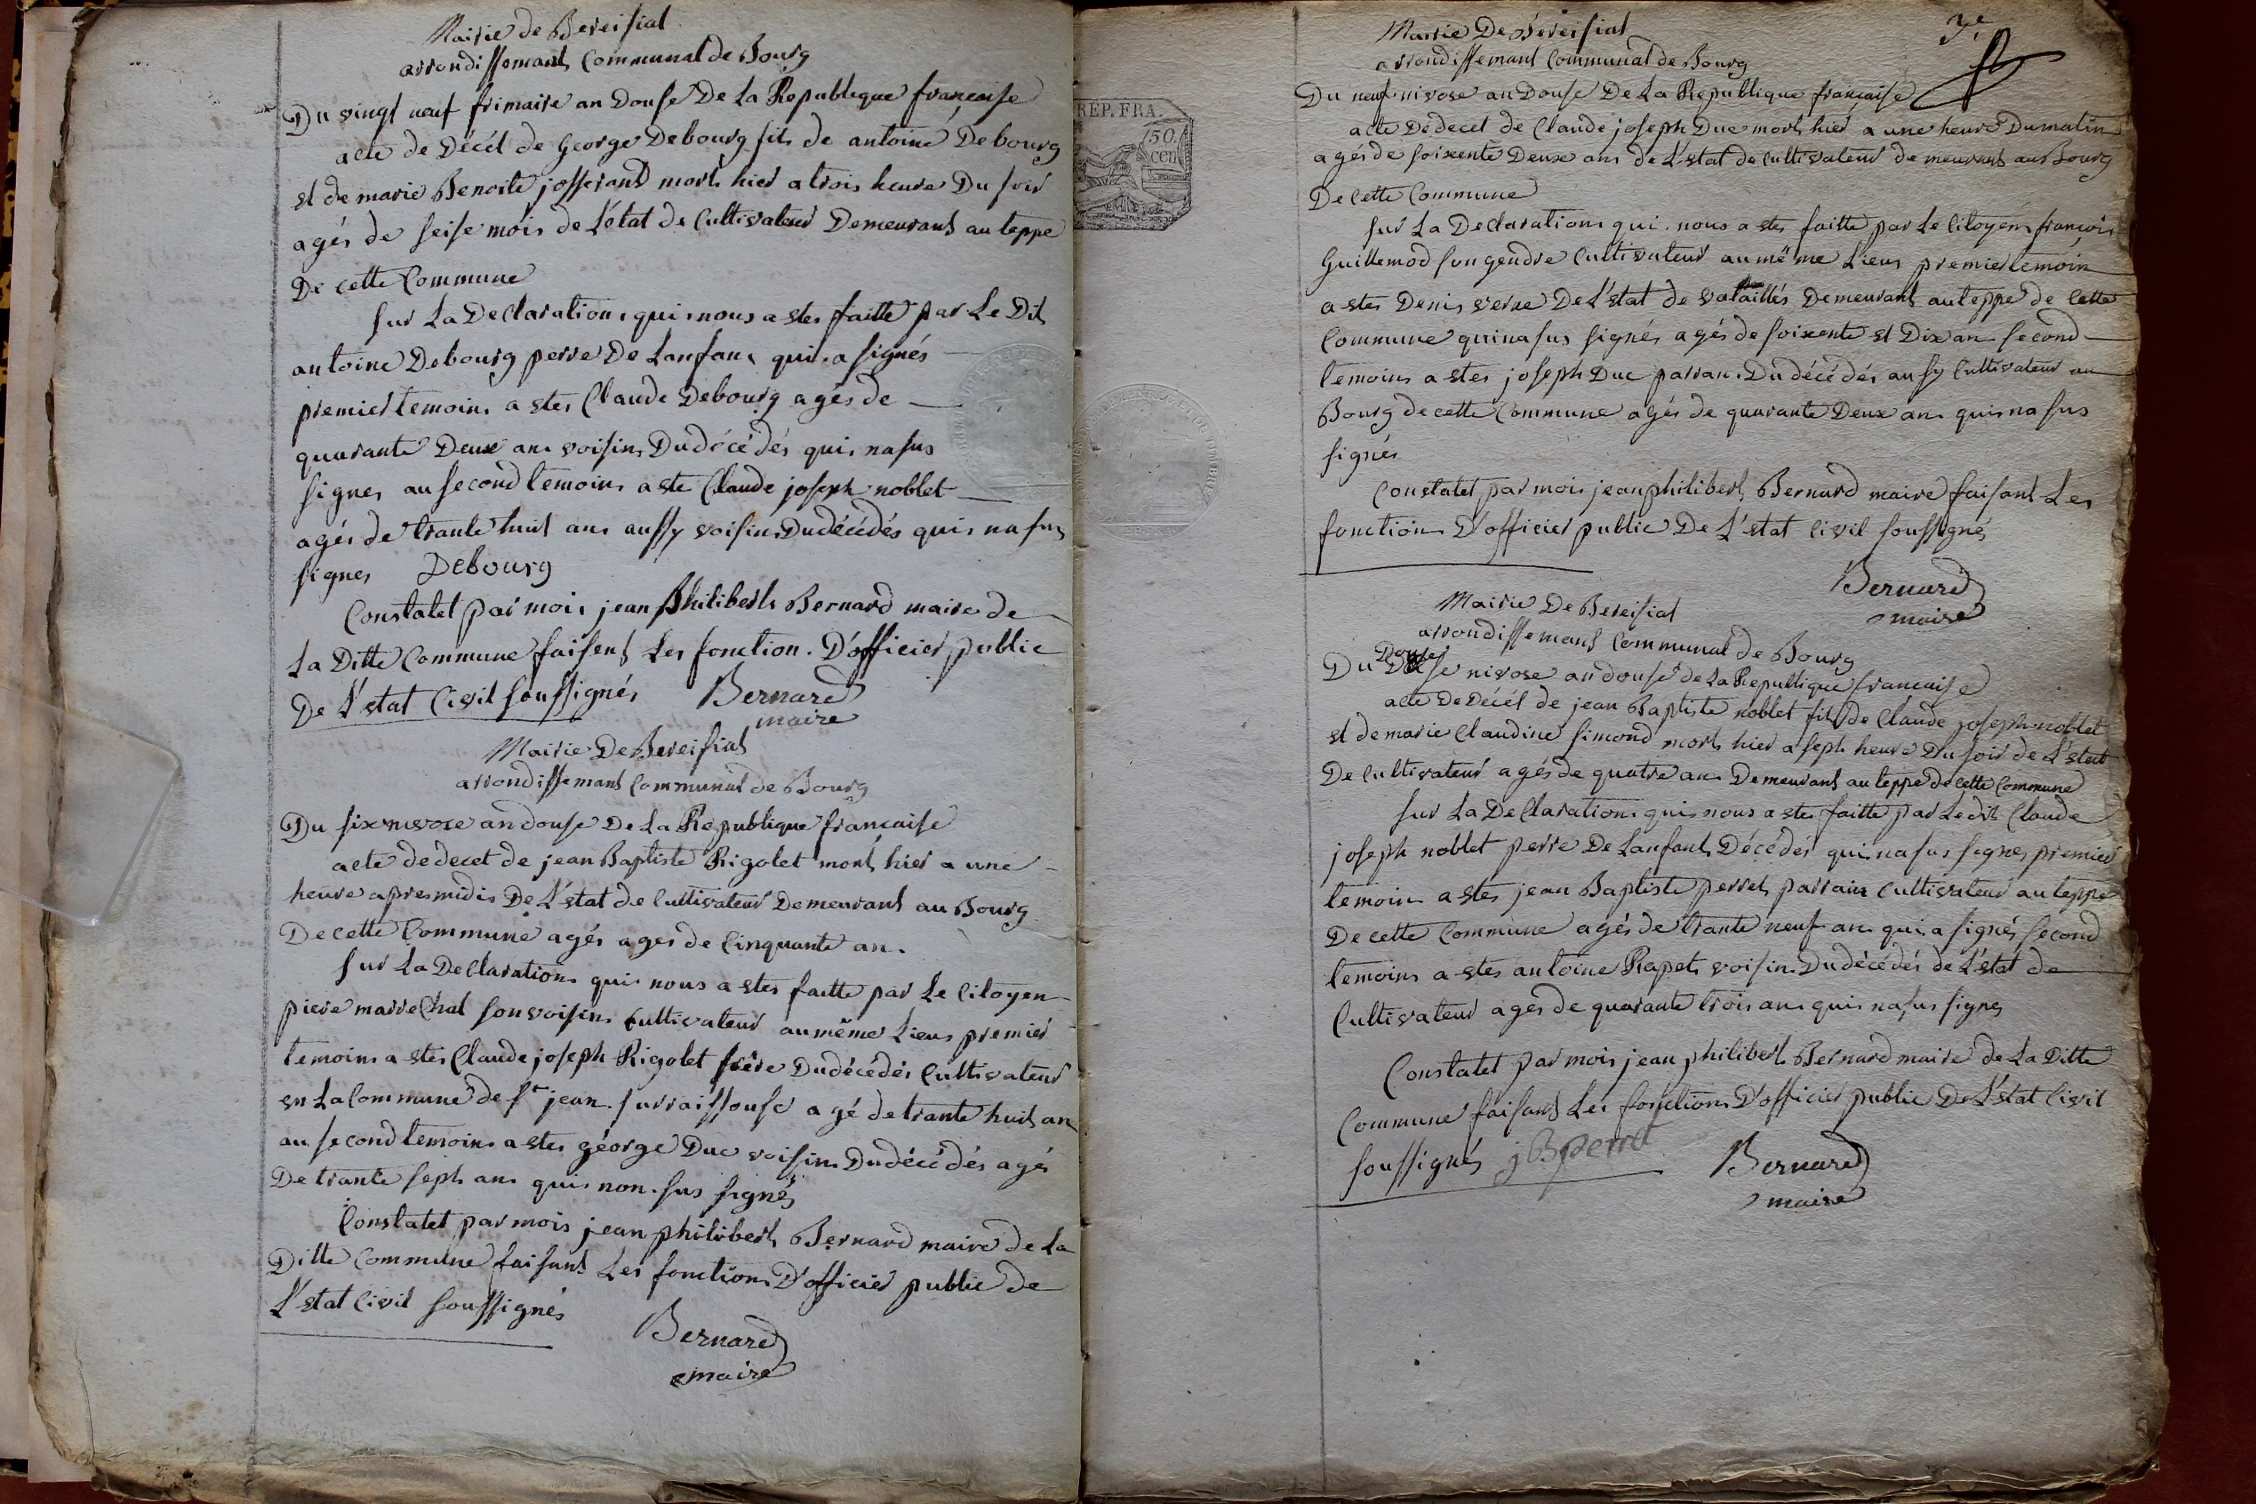 Mairie de Bereisiat
arrondissemant Communal de Bourg
Du vingt neuf frimaire an Douse De La Republique francaise
acte de Décêt de George Debourg fils de antoine Debourg
et de marie Benoite josserand mort hier a trois heure Du soir
agés de seise mois de L'état de Cultivateur Demeurant au teppe
De cette Commune
sur La Declaration qui nous a etes faitte par Le Dit
antoine Debourg perre De Lanfan qui a signés
premier temoins a etes Claude Debourg agés de
quarante Deux an voisin Du décédés qui na sus
signer au second temoins a ete Claude joseph noblet
agés de trante huit ans aussy voisin Du décédés qui na sus
signer Debourg
Constatet par mois jean philibert Bernard maire de
La Ditte Commune faisent Les fonction D'officier public
De L'etat Civil soussignés Bernard
maire
Mairie De Bereisiat
arrondissemant Communal de Bourg
Du six nivose an douse De La Republique francaise
acte de decet de jean Baptiste Rigolet mort hier a une
heure apres midis De L'etat de Cultivateur Demeurant au Bourg
De cette Commune agés ages de Cinquante an
sur La Declaration qui nous a etes faitte par Le Citoyen
piere marrechal son voisin Cultivateur au même Lieus premier
temoins a etes Claude joseph Rigolet frère Du décédés Cultivateur
en La Commune de St jean sur raissouse agé de trante huit an
au second temoins a etes géorge Duc voisin Du décédés agés
De trante sept an qui non sus signés
Constatet par mois jean philibert Bernard maire de La
Ditte Commune faisant Les fonction D'officier public de
L'etat Civil soussignés
Bernard
maire
REP. FRA.
50
cen
3e
Mairie De Bereisiat
arrondissemant Communal de Bourg
Du neuf nivose an Douse De La Republique francaise
acte De decet de Claude joseph Duc mort hier a une heure Du matin
agés de soixente Deux ans de L'etat de Cultivateur demeurant au Bourg
De cette Commune
sur La Declaration qui nous a etes faitte par Le Citoyen francois
Guillemod son gendre Cultivateur au même Lieus premier temoin
a etes Denis verne De L'etat de Demeurant au teppe de Cette
Commune qui na sus signés agés de soixente et Dix an second
temoins a etes joseph Duc parran Du décédés ausy Cultivateur au
Bourg de cette Commune agés de quarante Deux an qui na sus
signés
Constatet par mois jean philibert Bernard maire faisant Les
fonction D'officier public De L'etat Civil soussignés
Bernard
maire
Mairie De Bereisiat
arrondissemant Communal de Bourg
Du Douse nivose an douse de La Republique francaise
acte De Décêt de jean Baptiste noblet fils de Claude joseph noblet
et de marie Claudine simond mort hier a sept heure Du soir de L'etat
De Cultivateur agés de quatre an Demeurant au teppe de cette Commune
sur La Declaration qui nous a etes faitte par Le dit Claude
joseph noblet perre De Lanfant Décédés qui na sus signer premier
temoin a etes jean Baptiste perret parrain Cultivateur au teppe
De cette Commune agés de trante neuf an qui a signés second
temoins a etes antoine Rapet voisin Du décédés de L'etat de
Cultivateur agés de quarante trois an qui na sus signer
Constatet par mois jean philibert Bernard maire de La Ditte
Commune faisant Les fonction D'officier public De L'etat Civil
soussignés jBperret Bernard
maire